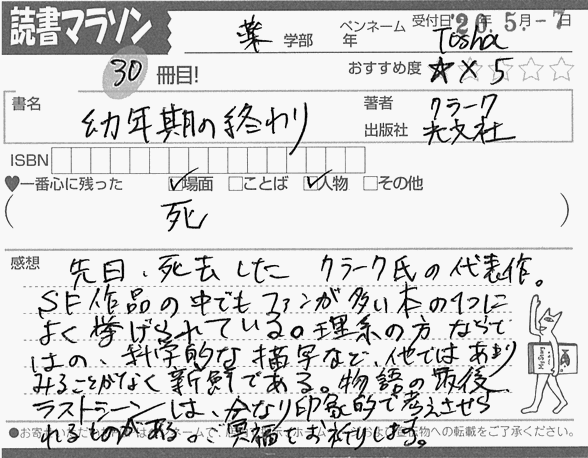 読書マラソン
薬 学部 年 ペンネーム Toshix 受付日 '20年 5月-7日
30 冊目! おすすめ度 ★×5 ☆☆☆
書名 幼年期の終わり 著者 クラーク
出版社 光文社
ISBN
♥一番心に残った ☑場面 □ことば ☑人物 □その他
( 死 )
感想 先日、死去したクラーク氏の代表作。
SF作品の中でもファンが多い本の1つに
よく挙げられている。理系の方ならで
はの、科学的な描写など、他ではあまり
みることがなく新鮮である。物語の最後
ラストシーンは、かなり印象的で考えさせら
れるものがある。ご冥福をお祈りします。
●お寄せいただも
への転載をご了承ください。